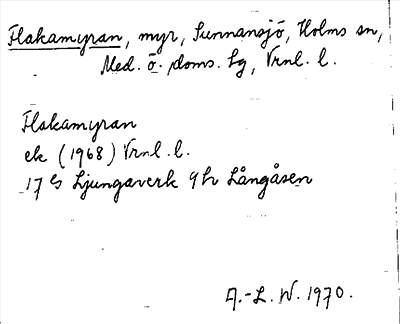 Flakamyran, myr, Sunnansjö, Holms sn,
Med. ö. doms. lg, Vrnl. l.
Flakamyran
ek (1968) Vrnl. l.
17 G Ljungaverk 9h Långåsen
A.-L. W. 1970.